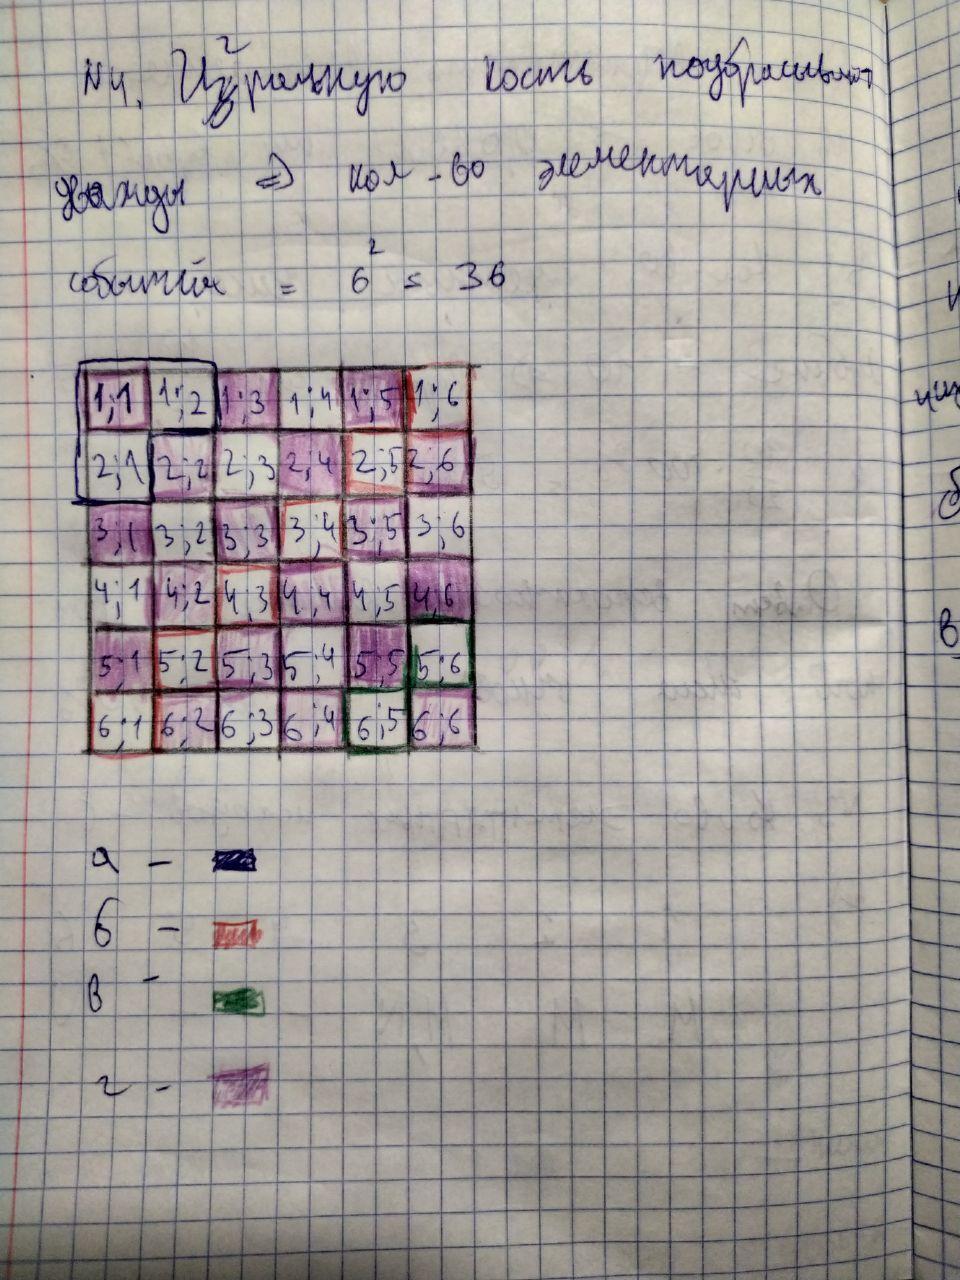 №4. Игральную кость подбрасывают
дважды => кол-во элементарных
событий = 6² = 36
1;1 1;2 1;3 1;4 1;5 1;6
2;1 2;2 2;3 2;4 2;5 2;6
3;1 3;2 3;3 3;4 3;5 3;6
4;1 4;2 4;3 4;4 4;5 4;6
5;1 5;2 5;3 5;4 5;5 5;6
6;1 6;2 6;3 6;4 6;5 6;6
а -
б -
в -
г -